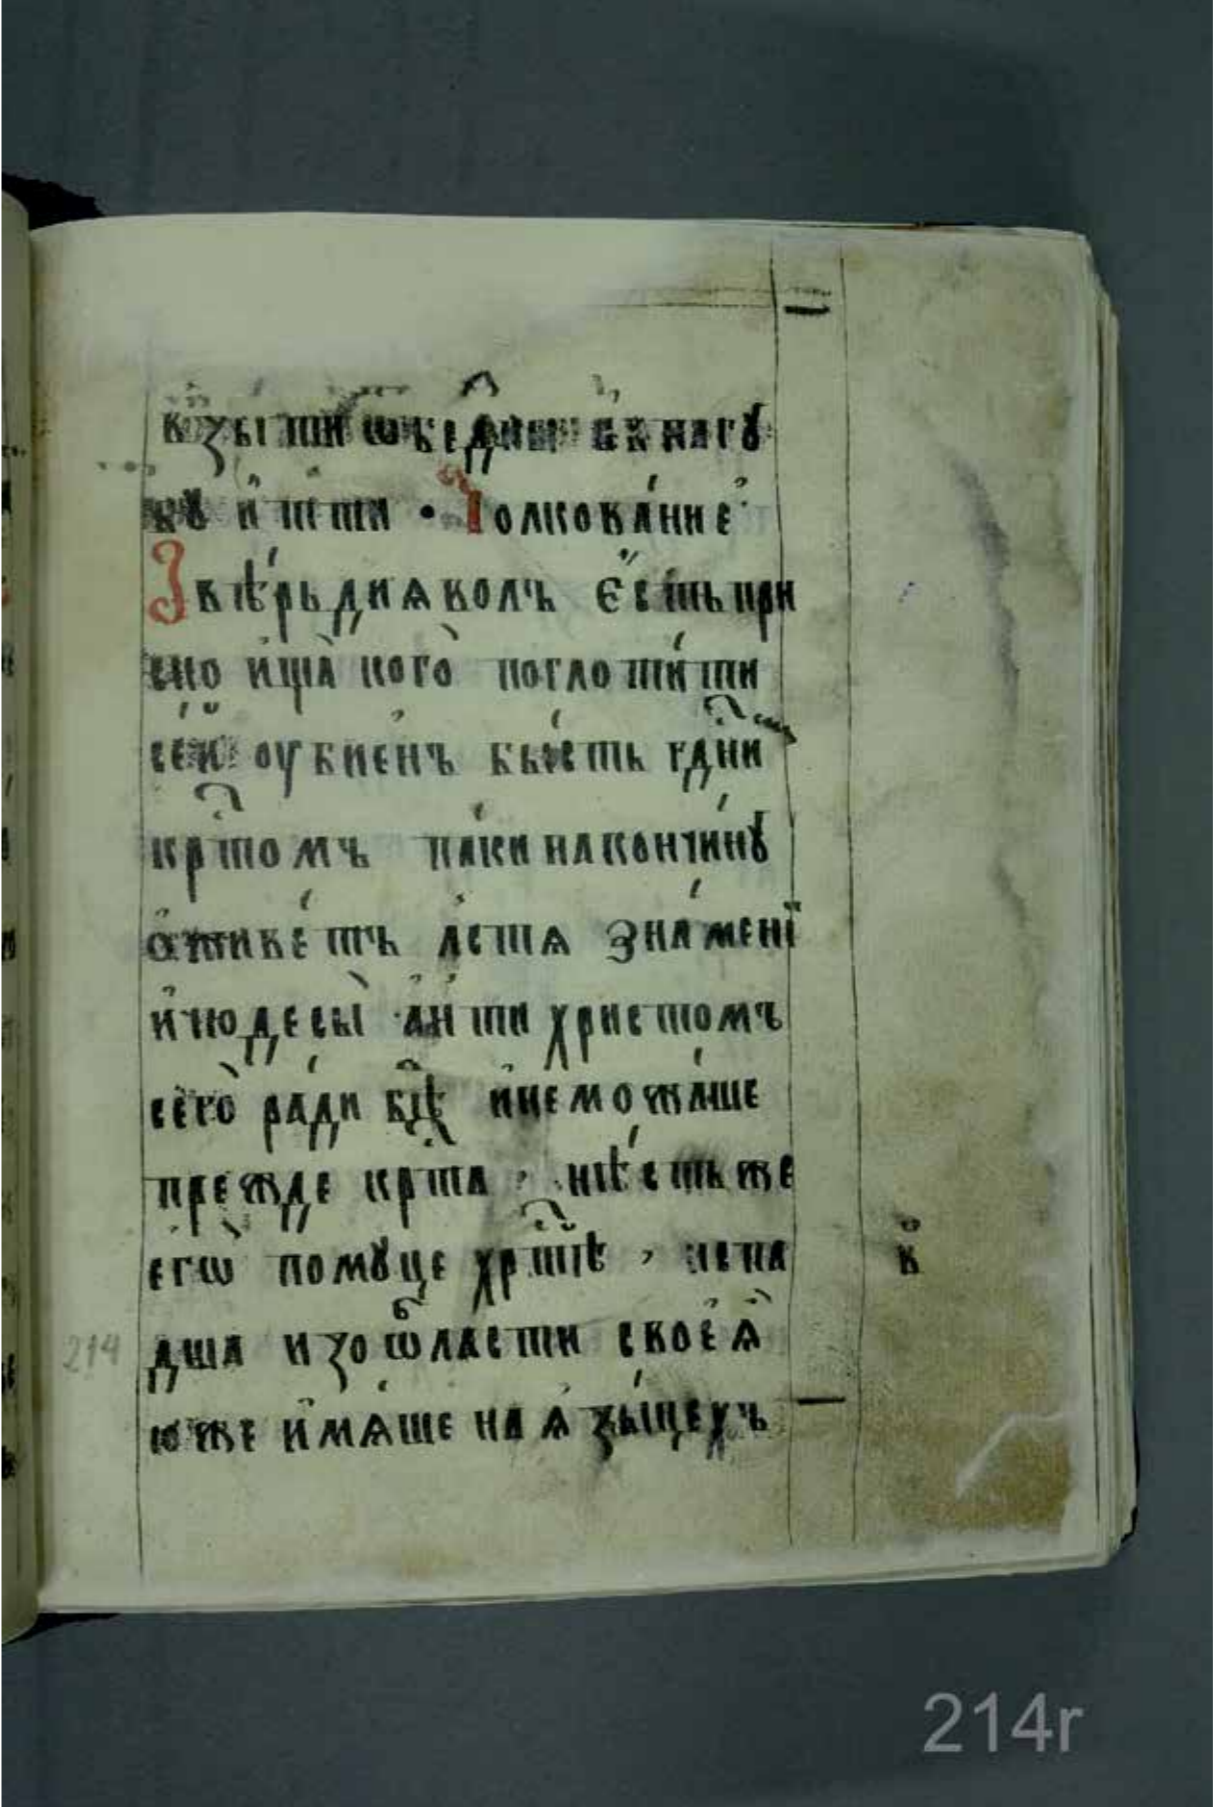 възыти ѿ бе́дны и́ в пагꙋ
бꙋ и́ити • Толкова́ние
Ꙁвѣ́рь диꙗволъ є́сть при
сно и҆ща̀ кого̀ поглоти́ти
се́й оубие́нъ бы́сть гдⷭ҇ни
крⷭ҇томъ па́ки на кончи́нꙋ
ѡ҆живе́тъ ле́стѧ зна́мені
и҆ чюдесы̀ а҆нтихристомъ
сего̀ ра́ди бѣ̀ и҆ не можа́ше
прежде крⷭ҇та , нѣ́сть же
егѡ̀ помꙋце хрⷭ҇тѣ , испа
дша изо ѿбласти своеѧ̀
юже и҆мѧ́ше на ѧ҆зы́цехъ
в
214
214r